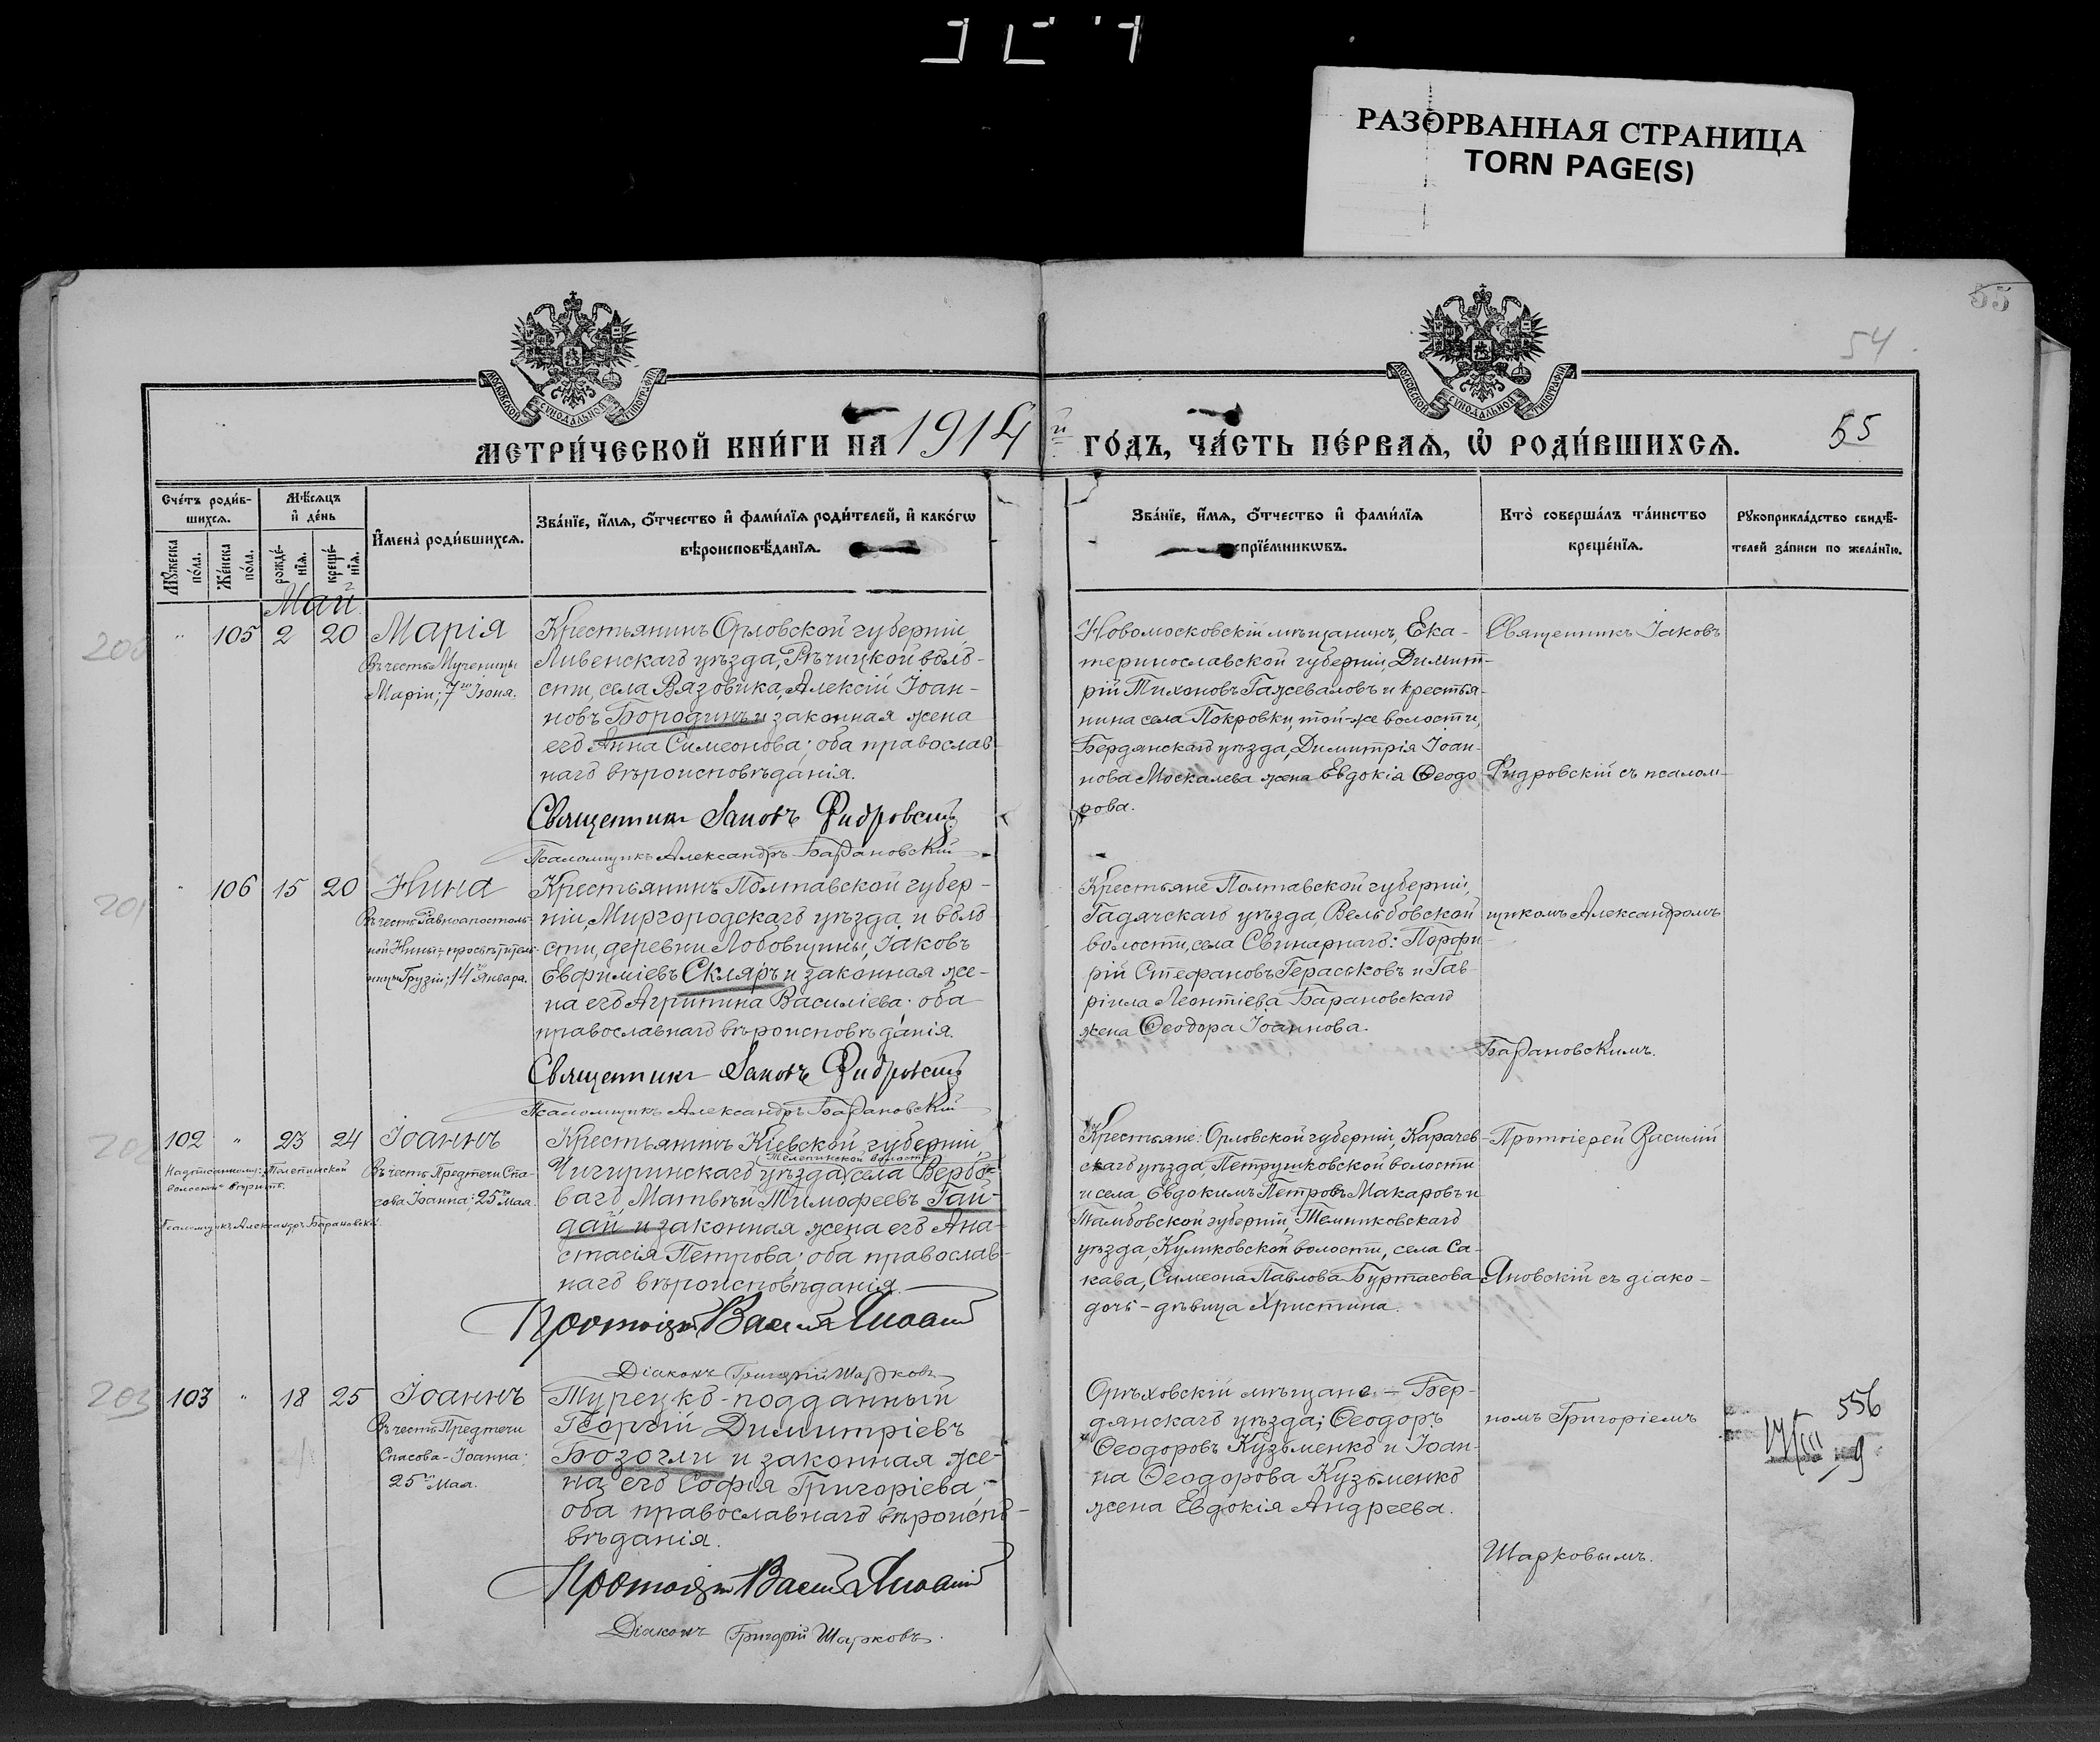 РАЗОРВАННАЯ СТРАНИЦА
TORN PAGE(S)
55
54
МОСКОВСКОЙ СѴНОДАЛЬНОЙ ТИПОГРАФІИ
МОСКОВСКОЙ СѴНОДАЛЬНОЙ ТИПОГРАФІИ
МЕТРИ́ЧЕСКОЙ КНИ́ГИ НА 1914й ГО́ДЪ, ЧА́СТЬ ПЕ́РВАЯ, Ѡ РОДИ́ВШИХСЯ.
55
Сче́тъ роди́в-
шихся.
Му́жеска по́ла.
Же́нска по́ла.
Мѣ́сяцъ и де́нь
рожде́-нїя.
креще́-нїя.
Имена̀ роди́вшихся.
Зва́нїе, и́мя, о́тчество и фами́лїя роди́телей, и како́гѡ
вѣроисповѣ́данїя.
Зва́нїе, и́мя, о́тчество и фами́лїя
спрїе́мникѡвъ.
Кто̀ соверша́лъ та́инство
креще́нїя.
Рукоприкла́дство свидѣ́-
телей за́писи по жела́нїю.
Май
105 2 20 Марія
Въ честь Мученицы
Маріи; 7го Іюня.
Крестьянинъ Орловской губерніи,
Ливенскаго уѣзда, Рѣчицкой воло-
сти, села Вязовика, Алексій Іоан-
новъ Бородинъ и законная жена
его Анна Симеонова; оба православ-
наго вѣроисповѣданія.
Священникъ Іаковъ Фидровскій
Псаломщикъ Александръ Барановскій
Новомосковскій мѣщанинъ, Ека-
теринославской губерніи, Димит-
рій Тихоновъ Гажеваловъ и крестья-
нина села Покровки, той-же волости,
Бердянскаго уѣзда, Димитрія Іоан-
нова Москалева жена Евдокія Ѳеодо-
рова.
Священникъ Іаковъ
Фидровскій съ псалом-
201
106 15 20 Нина
Въ честь Равноапостоль-
ной Нины, просвѣтитель-
ницы Грузіи; 14го Января.
Крестьянинъ Полтавской губер-
ніи, Миргородскаго уѣзда и воло-
сти, деревни Лобовщины, Іаковъ
Евфиміевъ Скляръ и законная же-
на его Агрипина Василіева; оба
православнаго вѣроисповѣданія.
Священникъ Іаковъ Фидровскій
Псаломщикъ Александръ Барановскій
Крестьяне Полтавской губерніи,
Гадячскаго уѣзда, Вельбовской
волости, села Свинарнаго: Порфи-
рій Стефановъ Гераськовъ и Гав-
ріила Леонтіева Барановскаго
жена Ѳеодора Іоаннова.
щикомъ Александромъ
Барановскимъ.
102 23 24 Іоаннъ
Въ честь Предтечи Спа-
сова Іоанна; 25го Мая.
Надписанному: „Телепинской
волости" вѣрить.
Псаломщикъ Александръ Барановскій.
Крестьянинъ Кіевской губерніи,
Телепинской волости
Чигиринскаго уѣзда, села Вербо-
ваго, Матѳѣй Тимофеевъ Гай-
дай и законная жена его Ана-
стасія Петрова; оба православ-
наго вѣроисповѣданія.
Протоіерей Василій Яновскій
Діаконъ Григорій Шарковъ
Крестьяне: Орловской губерніи, Карачев-
скаго уѣзда, Петрушковской волости
и села, Евдокимъ Петровъ Макаровъ и
Тамбовской губерніи, Темниковскаго
уѣзда, Куликовской волости, села Са-
кава, Симеона Павлова Буртасова
дочь - дѣвица Христина.
Протоіерей Василій
Яновскій съ діако-
203
103 18 25 Іоаннъ
Въ честь Предтечи
Спасова - Іоанна;
25го Мая.
Турецко-подданный
Георгій Димитріевъ
Бозогли и законная же-
на его Софія Григоріева;
оба православнаго вѣроиспо-
вѣданія.
Протоіерей Василій Яновскій
Діаконъ Григорій Шарковъ.
Орѣховскій мѣщане - Бер-
дянскаго уѣзда; Ѳеодоръ
Ѳеодоровъ Кузьменко и Іоан-
на Ѳеодорова Кузьменко
жена Евдокія Андреева.
номъ Григоріемъ
Шарковымъ.
556